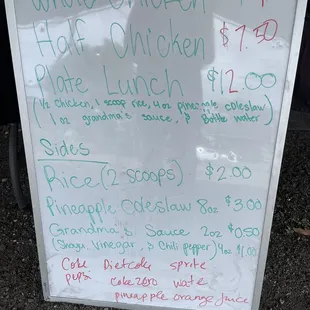 Whole Chicken
Half Chicken $7.50
Plate Lunch $12.00
(½ chicken, 1 scoop rice, 4oz pineapple coleslaw
1 oz grandma's sauce, & Bottle water)
Sides
Rice (2 scoops) $2.00
Pineapple Coleslaw 8oz $3.00
Grandma's Sauce 2oz $0.50
(Shoyu, Vinegar, & Chili pepper) 4oz $1.00
Coke Diet coke sprite
pepsi coke zero wate
pineapple orange juice